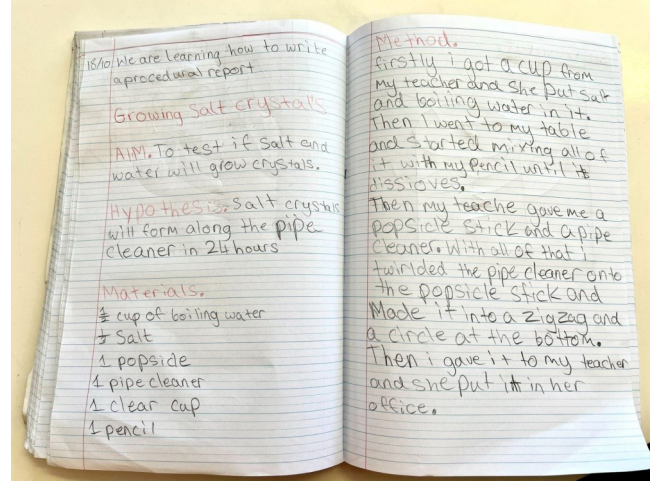 18/10 We are learning how to write
a procedural report
Growing Salt crystals
AIM. To test if Salt and
water will grow crystals.
Hypothesis. Salt crystals
will form along the pipe
cleaner in 24 hours
Materials.
½ cup of boiling water
½ Salt
1 popside
1 pipe cleaner
1 clear cup
1 pencil
Method.
firstly i got a cup from
my teacher and she put salt
and boiling water in it.
Then I went to my table
and started mixing all of
it with my pencil until it
dissioves.
Then my teache gave me a
popsicle stick and a pipe
cleaner. With all of that i
twirlded the pipe cleaner onto
the popsicle stick and
Made it into a zigzag and
a circle at the bottom.
Then i gave it to my teacher
and she put it in her
office.